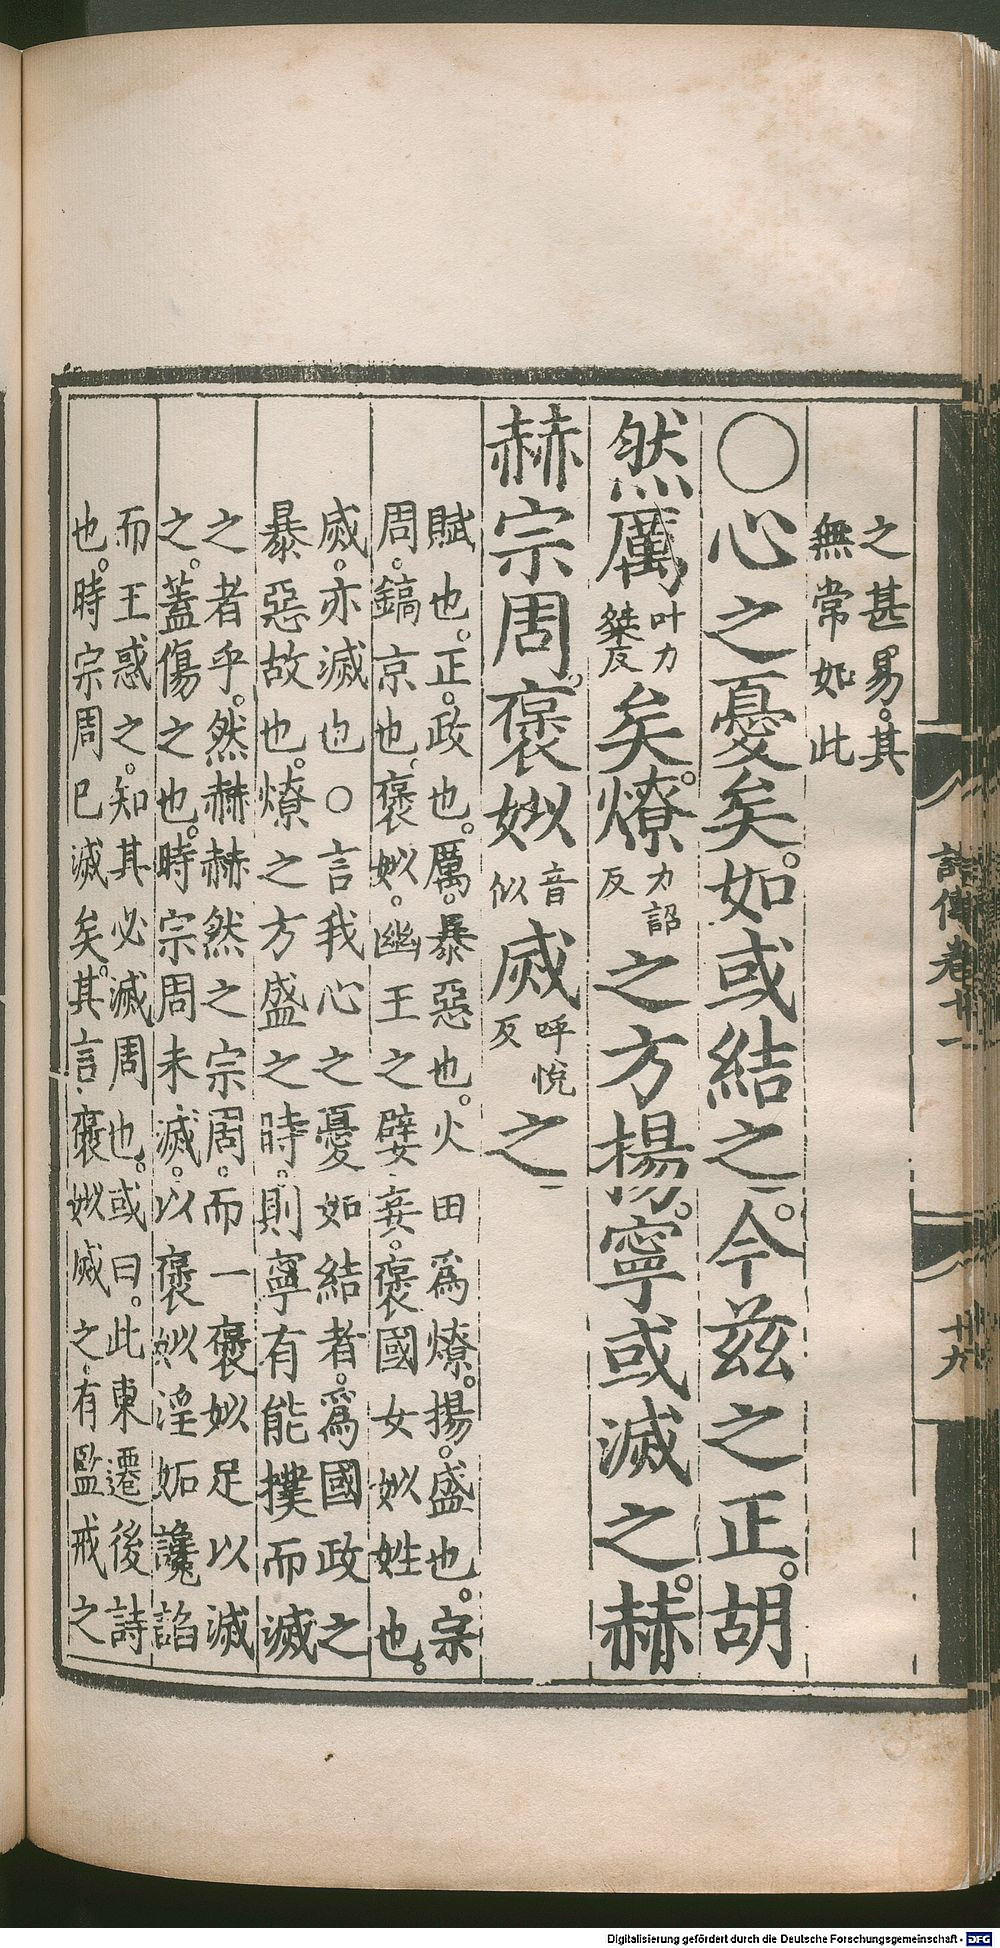 之甚易。其
無常如此
○心之憂矣。如或結之。今茲之正。胡
然厲叶力桀反矣。燎力詔反之方揚。寧或滅之。赫
赫宗周。褒姒音似烕呼悅反之
賦也。正。政也。厲。暴惡也。火田爲燎。揚。盛也。宗
周。鎬京也。褒姒。幽王之嬖妾。褒國女姒姓也。
烕。亦滅也○言我心之憂如結者。爲國政之
暴惡故也。燎之方盛之時。則寧有能撲而滅
之者乎。然赫赫然之宗周。而一褒姒足以滅
之。蓋傷之也。時宗周未滅。以褒姒淫妬讒諂
而王惑之。知其必滅周也。或曰。此東遷後詩
也。時宗周已滅矣。其言褒姒烕之。有監戒之
詩傳卷十一
十九
Digitalisierung gefördert durch die Deutsche Forschungsgemeinschaft - DFG